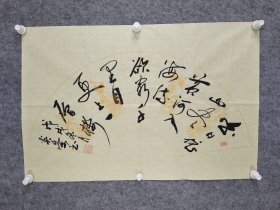 白日依
山尽
黄河入
海流
欲穷千
里目
更上一
层楼
戊戌年